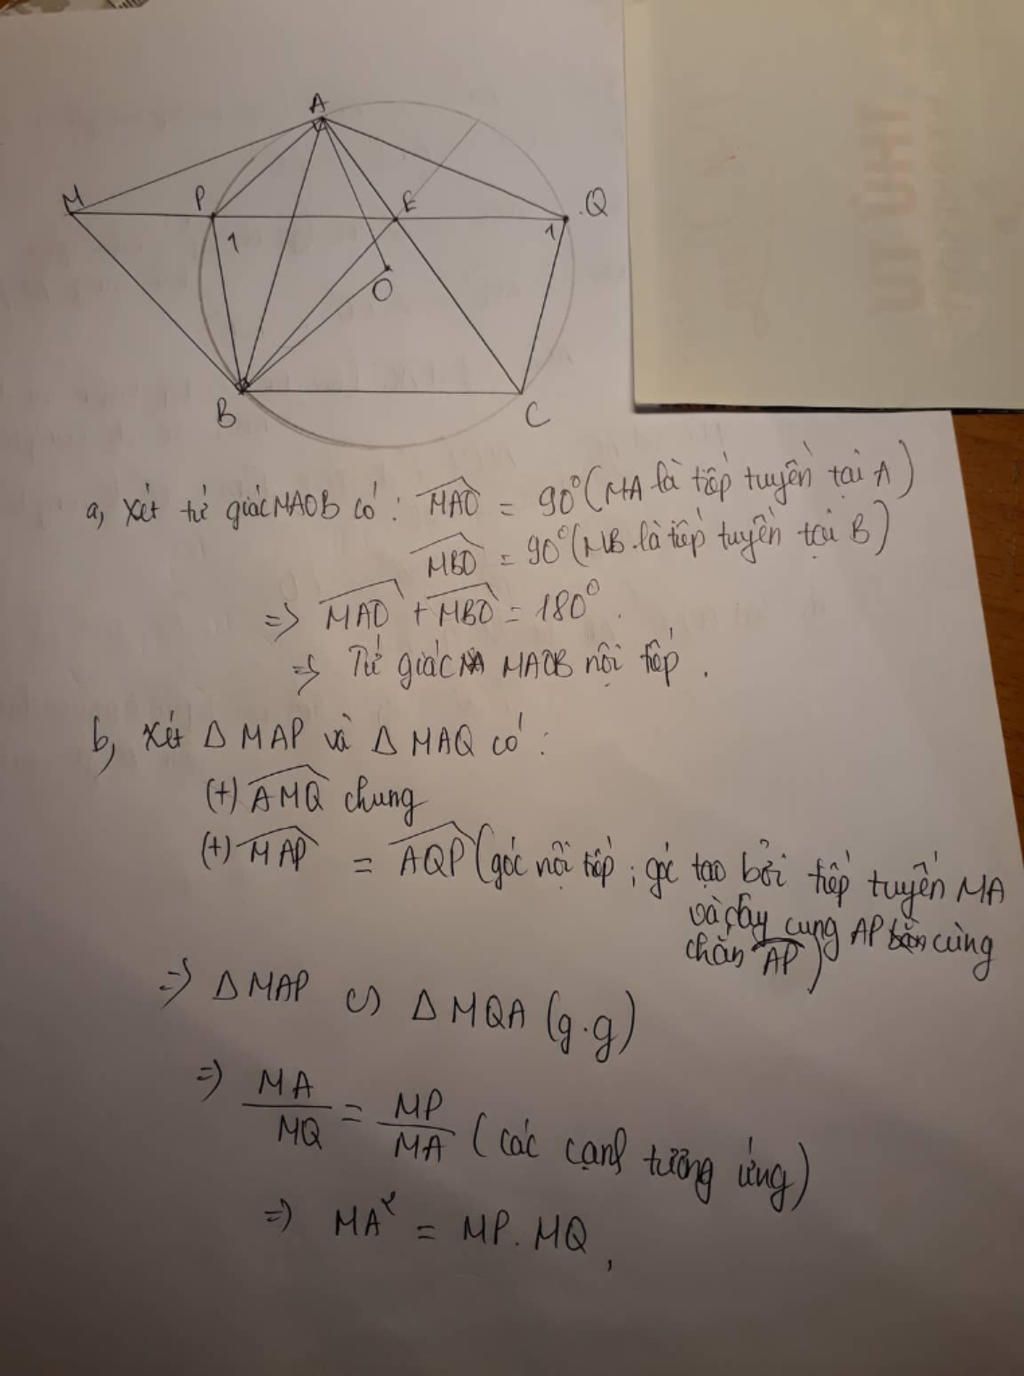 A
M
P
E
Q
1
1
O
B
C
a, Xét tứ giác MAOB có: MAO = 90° (MA là tiếp tuyến tại A)
MBO = 90° (MB là tiếp tuyến tại B)
=> MAO + MBO = 180°.
=> Tứ giác MAOB nội tiếp.
b, Xét Δ MAP và Δ MAQ có:
(+) AMQ chung
(+) MAP = AQP (góc nội tiếp; góc tạo bởi tiếp tuyến MA
và dây cung AP cùng
chắn AP)
=> Δ MAP ∽ Δ MQA (g.g)
=> MA/MQ = MP/MA (các cạnh tương ứng)
=> MA² = MP. MQ,